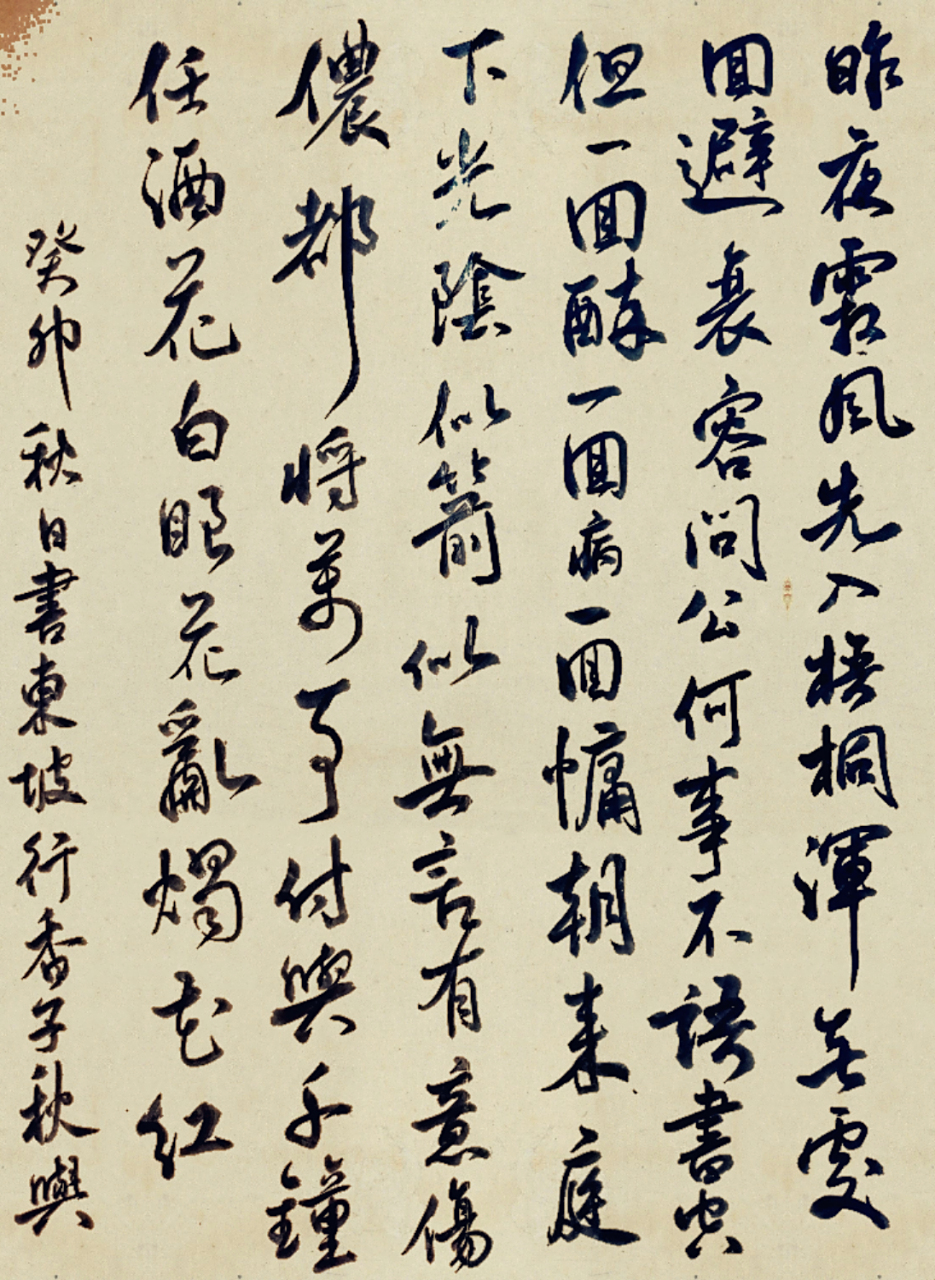 昨夜霜風先入梧桐渾無處
回避衰容問公何事不語書空
但一回醉一回病一回慵朝來庭
下光陰似箭似無言有意傷
儂都將萬事付與千鐘
任酒花白眼花亂燭花紅
癸卯秋日書東坡行香子秋興